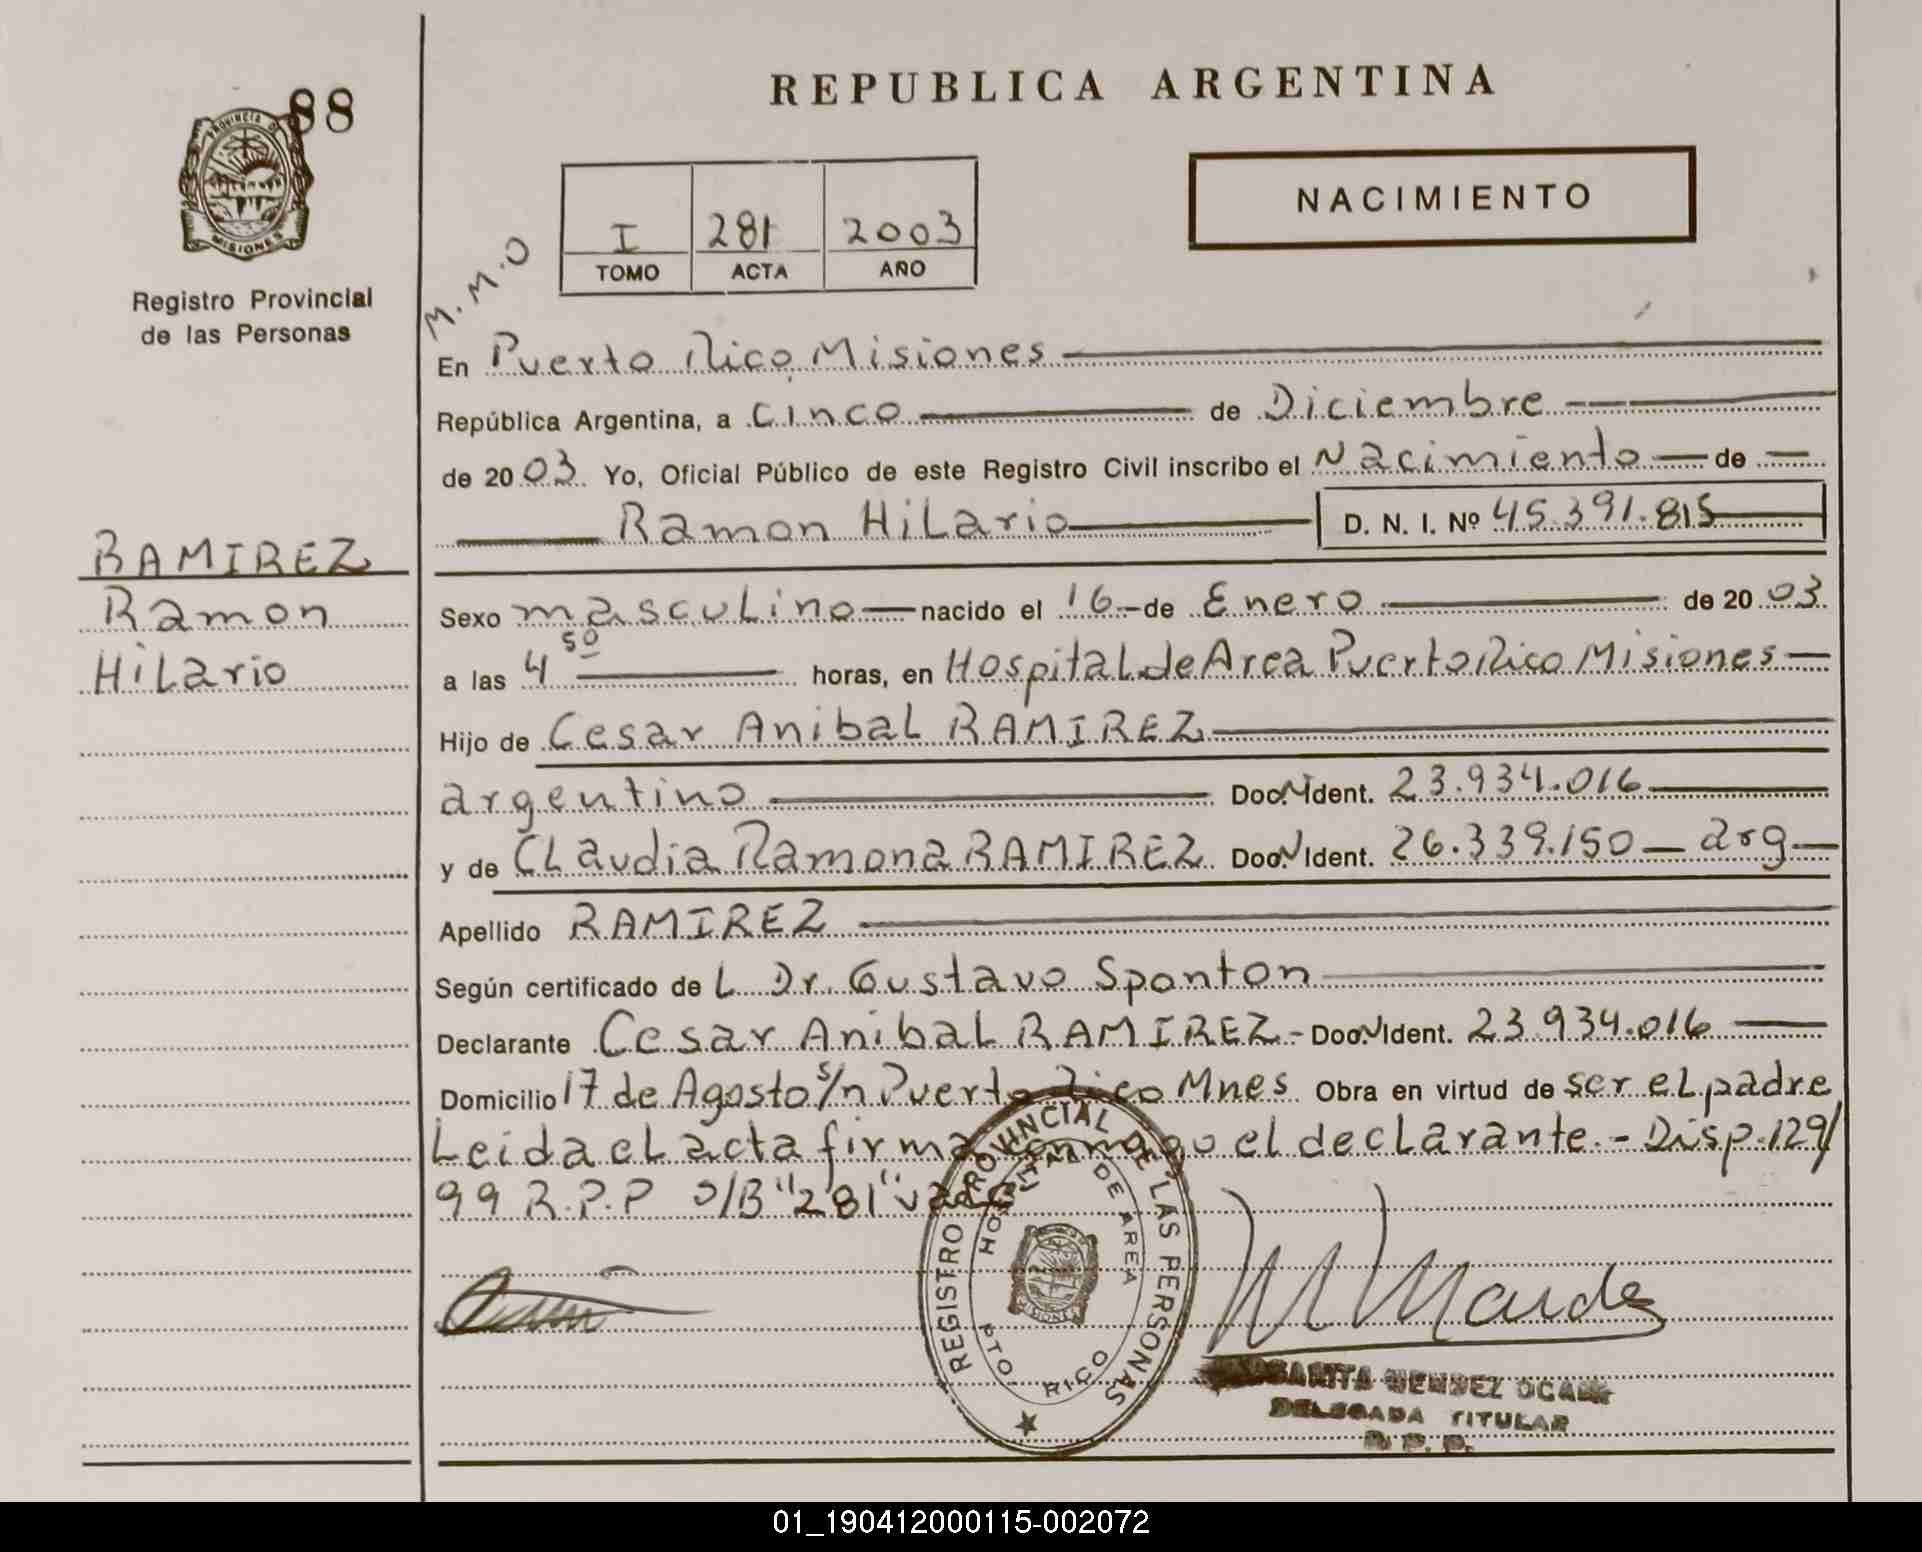 88
PROVINCIA DE
MISIONES
Registro Provincial
de las Personas
REPUBLICA ARGENTINA
NACIMIENTO
I 281 2003
TOMO ACTA AÑO
M.M.O
En Puerto Rico, Misiones
República Argentina, a Cinco de Diciembre
de 2003 Yo, Oficial Público de este Registro Civil inscribo el Nacimiento de
Ramon Hilario D. N. I. Nº 45.391.815
RAMIREZ
Ramon
Hilario
Sexo masculino nacido el 16 de Enero de 2003
a las 4 50 horas, en Hospital de Area Puerto Rico Misiones
Hijo de Cesar Anibal RAMIREZ
argentino Doc. N Ident. 23.934.016
y de Claudia Ramona RAMIREZ Doc. N Ident. 26.339.150 arg
Apellido RAMIREZ
Según certificado de L Dr. Gustavo Sponton
Declarante Cesar Anibal RAMIREZ - Doc. N Ident. 23.934.016
Domicilio 17 de Agosto s/n Puerto Rico Mnes Obra en virtud de ser el padre
Leida el acta firma conmigo el declarante.- Disp. 129/
99 R.P.P S/B "281" vale
REGISTRO PROVINCIAL DE LAS PERSONAS
HOSPITAL DE AREA
MISIONES
PTO. RICO
MENDEZ OCAM
DELEGADA TITULAR
R. P. P.
01_190412000115-002072